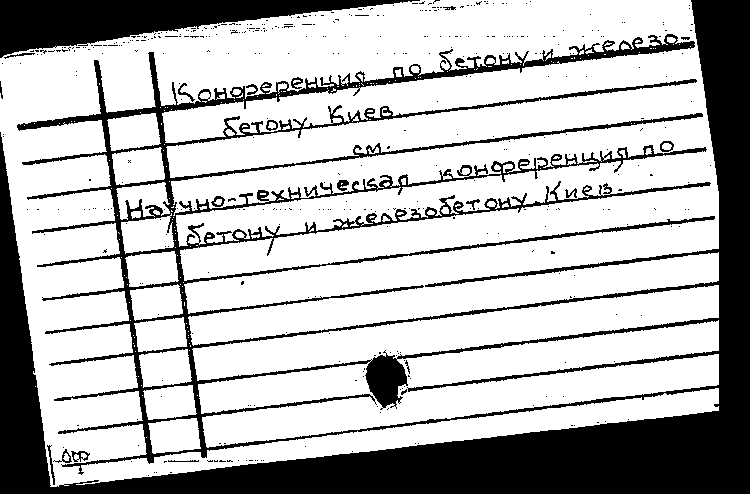 Конференция по бетону и железо-
бетону. Киев.
см.
Научно-техническая конференция по
бетону и железобетону. Киев.